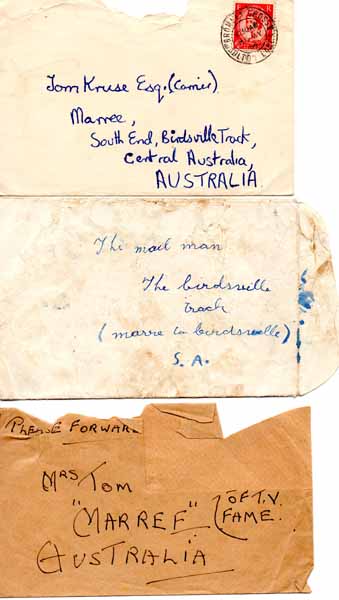 Tom Kruse Esq. (Carrier)
Marree,
South End, Birdsville Track,
Central Australia,
AUSTRALIA.
The mail man
The birdsville
track
(marre to birdsville)
S. A.
PLEASE FORWARD
MRS TOM
"MARREE" (OF T.V.
FAME.
AUSTRALIA